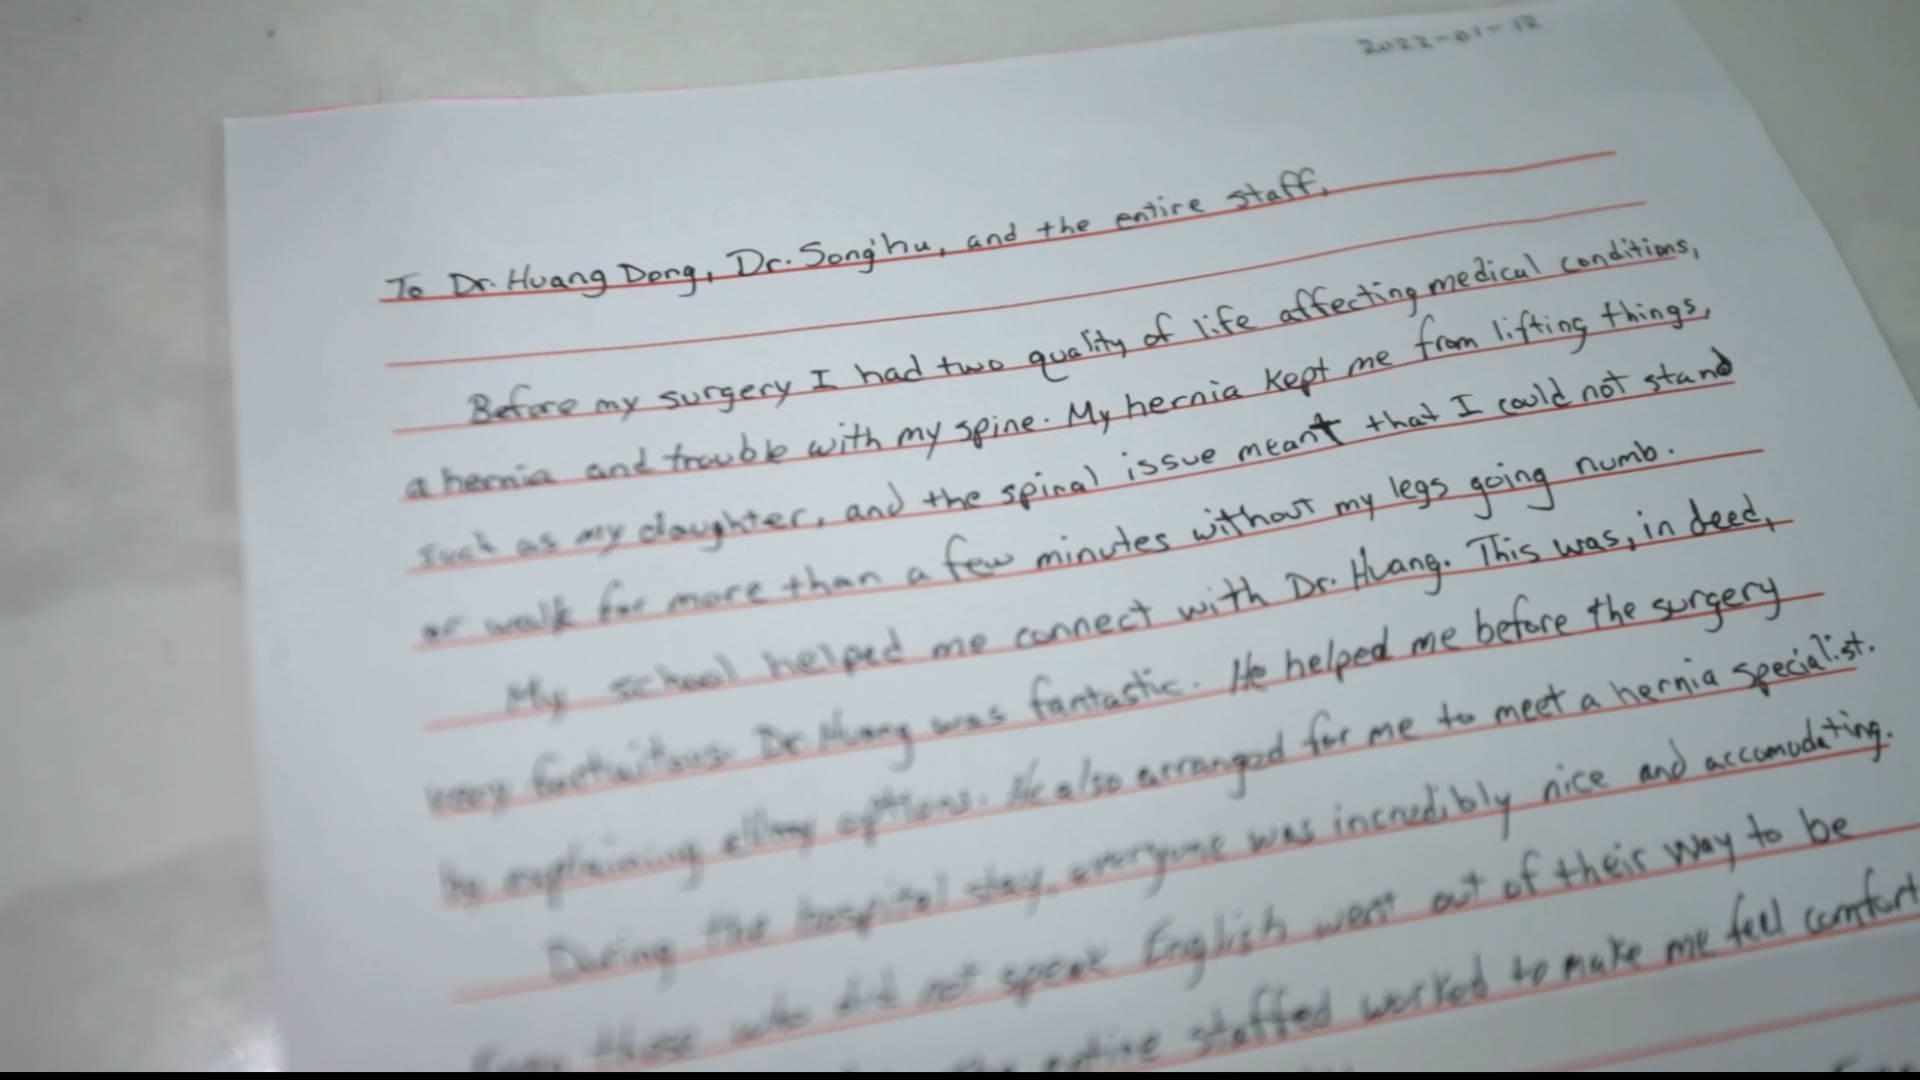 2022-01-12
To Dr. Huang Dong, Dr. Song'hu, and the entire staff,
Before my surgery I had two quality of life affecting medical conditions,
a hernia and trouble with my spine. My hernia kept me from lifting things,
such as my daughter, and the spinal issue meant that I could not stand
or walk for more than a few minutes without my legs going numb.
My school helped me connect with Dr. Huang. This was, in deed,
very Dr Huang was fantastic. He helped me before the surgery
by explaining options. He also arranged for me to meet a hernia specialist.
During the hospital stay, everyone was incredibly nice and accomodating.
Even those who did not speak English went out of their way to be
entire staffed worked to make me feel comfort